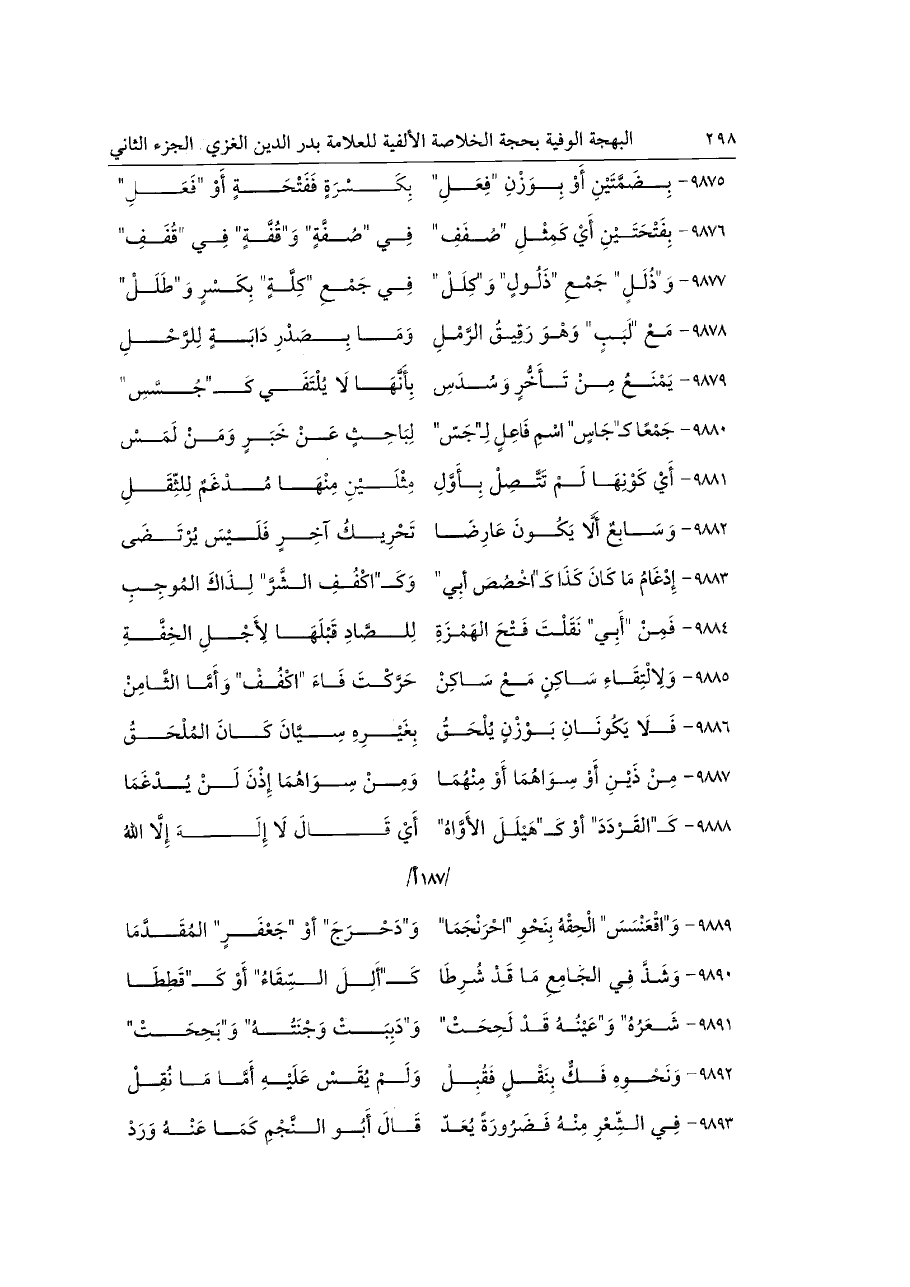 ٢٩٨ البهجة الوفية بحجة الخلاصة الألفية للعلامة بدر الدين الغزي. الجزء الثاني
٩٨٧٥- بِضَمَّتَيْنِ أَوْ بِوَزْنِ "فِعَلِ" بِكَسْرَةٍ فَفَتْحَةٍ أَوْ "فَعَلِ"
٩٨٧٦- بِفَتْحَتَيْنِ أَيْ كَمِثْلِ "صُفَفِ" فِي "صُفَّةٍ" وَ"قُفَّةٍ" فِي "قُفَفِ"
٩٨٧٧- وَ"ذُلَلٍ" جَمْعِ "ذَلُولٍ" وَ"كِلَلْ" فِي جَمْعِ "كِلَّةٍ" بِكَسْرٍ وَ"طَلَلْ"
٩٨٧٨- مَعْ "لَبَبٍ" وَهْوَ رَقِيقُ الرَّمْلِ وَمَا بِصَدْرِ دَابَةٍ لِلرَّحْلِ
٩٨٧٩- يَمْنَعُ مِنْ تَأَخُّرٍ وَسُدَسِ بِأَنَّهَا لَا يُلْتَفَي كَـ"جُسَّسِ"
٩٨٨٠- جَمْعًا كـَ"جَاسٍ" اسْمِ فَاعِلٍ لِـ"جَسّ" لِبَاحِثٍ عَنْ خَبَرٍ وَمَنْ لَمَسْ
٩٨٨١- أَيْ كَوْنِهَا لَمْ تَتَّصِلْ بِأَوَّلِ مِثْلَيْنِ مِنْهَا مُدْغَمٌ لِلثِّقَلِ
٩٨٨٢- وَسَابِعٌ أَلَّا يَكُونَ عَارِضَا تَحْرِيكُ آخِرٍ فَلَيْسَ يُرْتَضَى
٩٨٨٣- إِدْغَامُ مَا كَانَ كَذَا كَـ"اخْصُصَ أبِي" وَكَـ"اكْفُفِ الشَّرَّ" لِذَاكَ المُوجِبِ
٩٨٨٤- فَمِنْ "أَبِي" نَقَلْتَ فَتْحَ الهَمْزَةِ لِلصَّادِ قَبْلَهَا لِأَجْلِ الخِفَّةِ
٩٨٨٥- وَلِالْتِقَاءِ سَاكِنٍ مَعْ سَاكِنْ حَرَّكْتَ فَاءَ "اكْفُفْ" وَأَمَّا الثَّامِنْ
٩٨٨٦- فَلَا يَكُونَانِ بَوْزْنٍ يُلْحَقُ بِغَيْرِهِ سِيَّانَ كَانَ المُلْحَقُ
٩٨٨٧- مِنْ ذَيْنِ أَوْ سِوَاهُمَا أَوْ مِنْهُمَا وَمِنْ سِوَاهُمَا إِذْنَ لَنْ يُدْغَمَا
٩٨٨٨- كَـ"القَرْدَدَ" أوْ كـَ"هَيْلَلَ الأَوَّاهُ" أَيْ قَالَ لَا إِلَهَ إِلَّا اللهُ
/١٨٧أ/
٩٨٨٩- وَ"اقْعَنْسَسَ" الْحِقْهُ بِنَحْوِ "احْرَنْجَمَا" وَ"دَحْرَجَ" أوْ "جَعْفَرٍ" المُقَدَّمَا
٩٨٩٠- وَشَذَّ فِي الجَامِعِ مَا قَدْ شُرِطَا كَـ"أَلِلَ السِّقَاءُ" أَوْ كَـ"قَطِطَا
٩٨٩١- شَعَرُهُ" وَ"عَيْنُهُ قَدْ لَحِحَتْ" وَ"دَبِبَتْ وَجْنَتُهُ" وَ"بَحِحَتْ"
٩٨٩٢- وَنَحْوِهِ فَكٌّ بِنَقْلٍ فَقُبِلْ وَلَمْ يُقَسْ عَلَيْهِ أَمَّا مَا نُقِلْ
٩٨٩٣- فِي الشِّعْرِ مِنْهُ فَضَرُورَةً يُعَدّ قَالَ أَبُو النَّجْمِ كَمَا عَنْهُ وَرَدْ